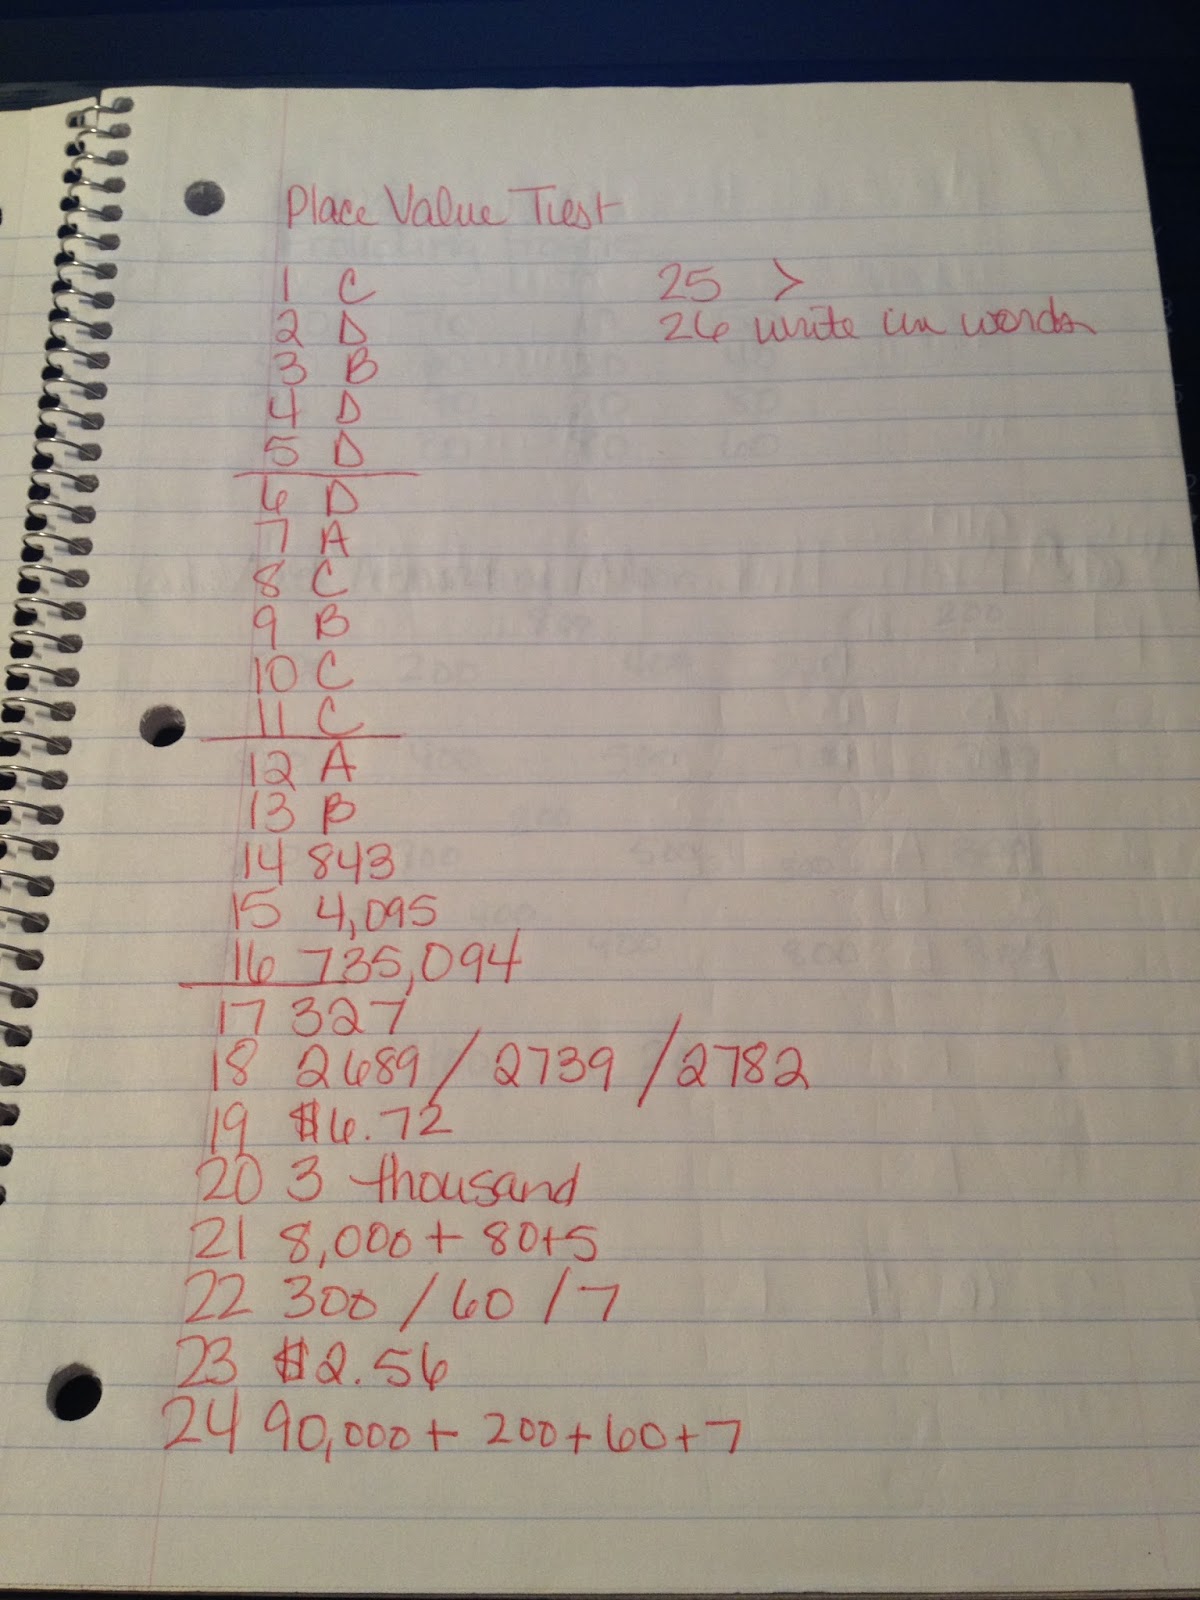 Place Value Test
1 C
2 D
3 B
4 D
5 D
6 D
7 A
8 C
9 B
10 C
11 C
12 A
13 B
14 843
15 4,095
16 735,094
17 327
18 2689 / 2739 / 2782
19 $6.72
20 3 thousand
21 8,000 + 80+5
22 300 / 60 / 7
23 $2.56
24 90,000 + 200 + 60 + 7
25 >
26 write in words